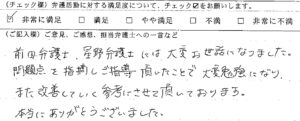 (チェック欄) 弁護活動に対する満足度について、チェック☑をお願いします。
☑ 非常に満足 □ 満足 □ やや満足 □ 不満 □ 非常に不満
(ご記入欄) ご意見、ご感想、担当弁護士への一言など
前田弁護士、宮野弁護士には大変お世話になりました。
問題点を指摘しご指導頂いたことで大変勉強になり、
また改善していく参考にさせて頂いております。
本当にありがとうございました。